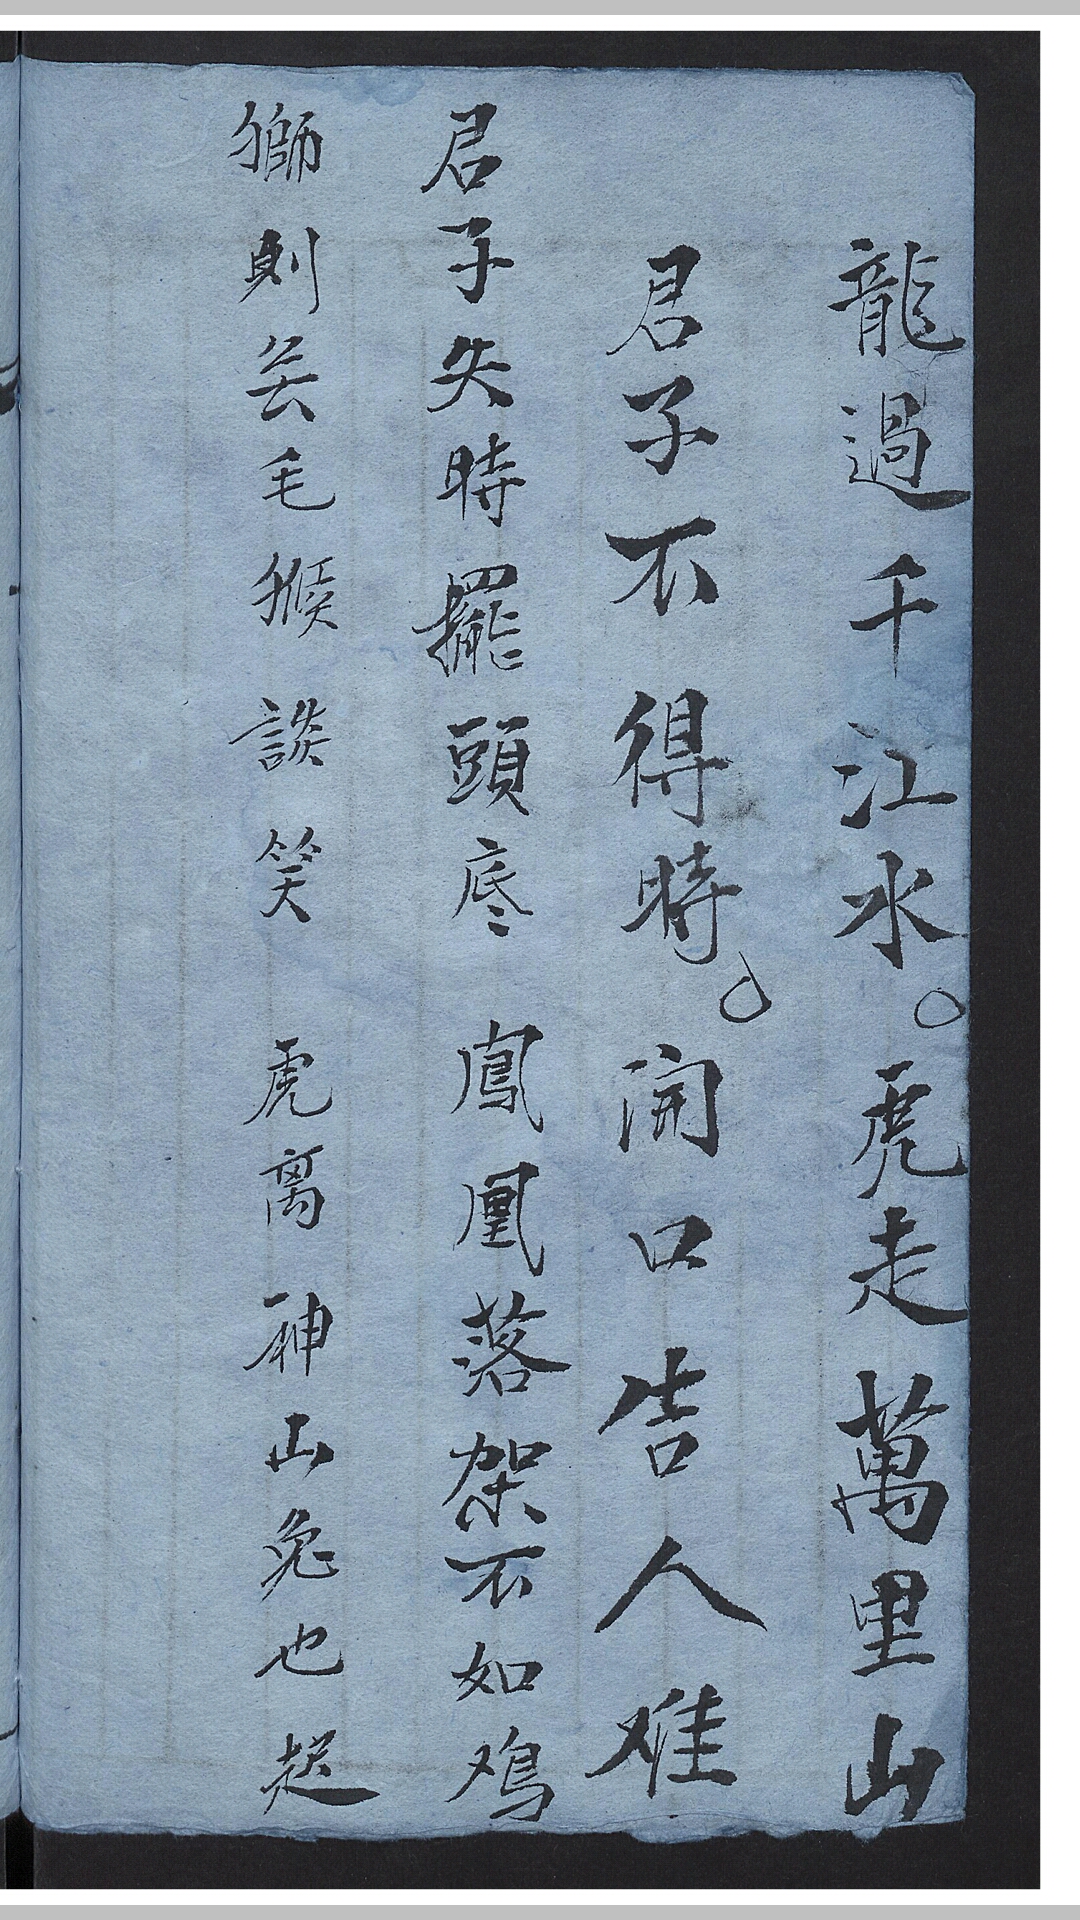 龍過千江水。虎走萬里山
君子不得時。開口告人难
君子失時擺頭底 鳳凰落架不如鳮
獅則丟毛猴談笑 虎离神山兔也起